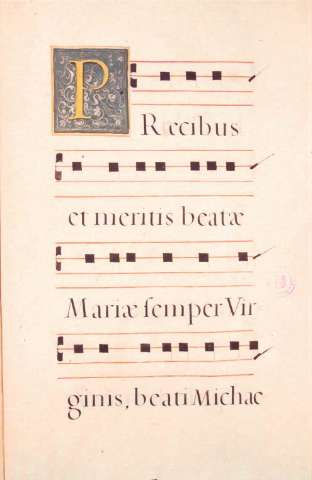 PRecibus
et meritis beatæ
Mariæ semper Vir
ginis, beati Michae